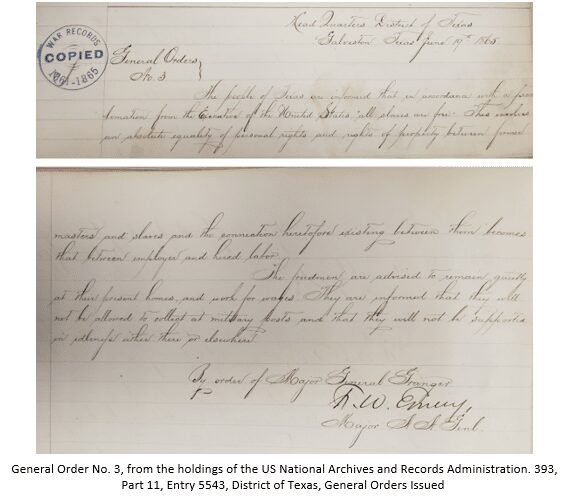 WAR RECORDS
COPIED
1861-1865
Head Quarters District of Texas
Galveston Texas June 19th 1865.
General Orders
No. 3
The people of Texas are informed that in accordance with a proc
lamation from the Executive of the United States "all slaves are free." This involves
an absolute equality of personal rights and rights of property between former
masters and slaves and the connection heretofore existing between them becomes
that between employer and hired labor.
The freedmen are advised to remain quietly
at their present homes, and work for wages. They are informed that they will
not be allowed to collect at military posts and that they will not be supported
in idleness either there or elsewhere
By order of Major General Granger
F. W. Emery,
Major A A Genl.
General Order No. 3, from the holdings of the US National Archives and Records Administration. 393,
Part 11, Entry 5543, District of Texas, General Orders Issued